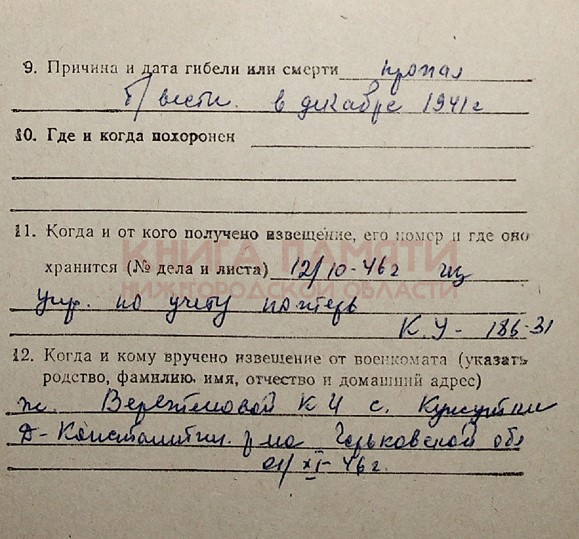 9. Причина и дата гибели или смерти пропал
б/вести. в декабре 1941 г
10. Где и когда похоронен
11. Когда и от кого получено извещение, его номер и где оно
КНИГА ПАМЯТИ
хранится (№ дела и листа) 12/10-46 г из
НИЖЕГОРОДСКОЙ ОБЛАСТИ
упр. по учету потерь
К.У - 186-31
12. Когда и кому вручено извещение от военкомата (указать
родство, фамилию, имя, отчество и домашний адрес)
ж. К И с.
Д-Константин. р-на Горьковской обл
/XI-46 г.